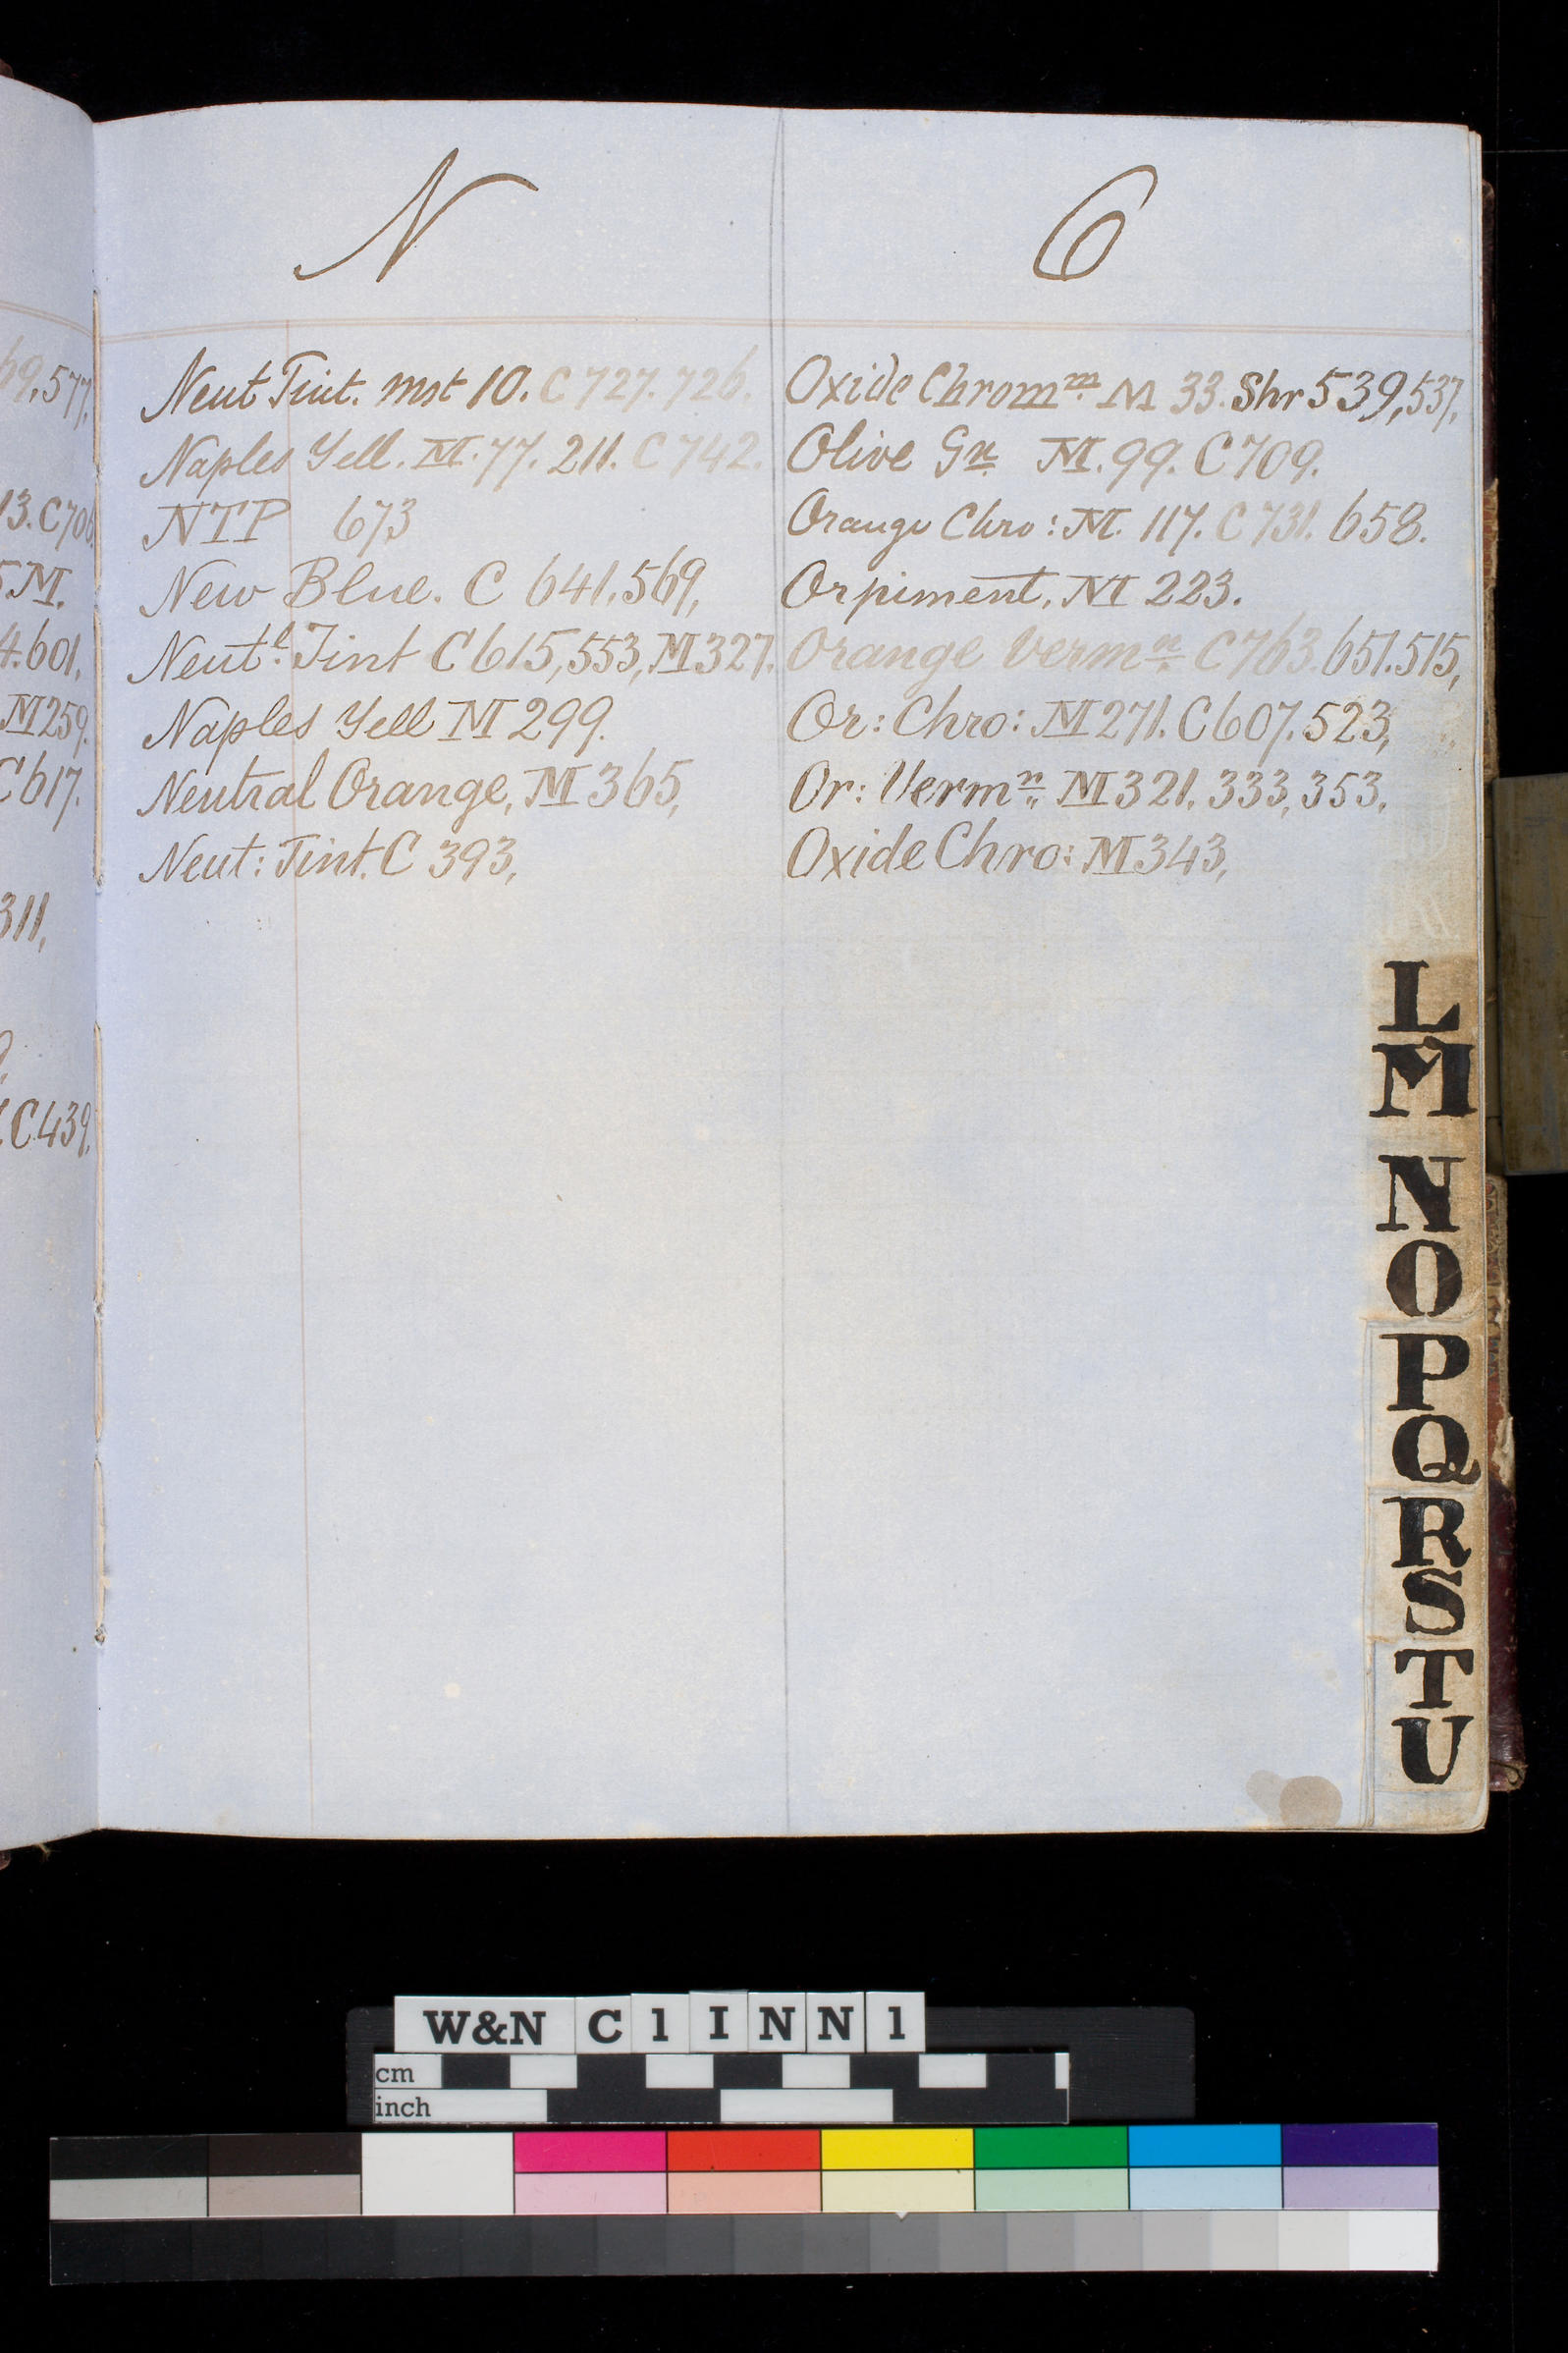 N
Neut Tint. mst 10. C 727. 726.
Naples Yell. M. 77. 211. C 742.
NTP 673
New Blue. C 641, 569,
Neut.l Tint C 615, 553, M 327.
Naples Yell M 299.
Neutral Orange, M 365,
Neut: Tint. C 393,
O
Oxide Chrom.m M 33. Shr 539, 537,
Olive Gn. M. 99. C 709.
Orange Chro: M. 117. C 731. 658.
Orpiment. M 223.
Orange Verm.n C 763. 651. 515,
Or: Chro: M 271. C 607. 523,
Or: Verm.n M 321, 333, 353,
Oxide Chro: M 343,
69, 577,
13. C 706
M.
4. 601,
M 259.
C 617.
311,
C 439.
L
M
N
O
P
Q
R
S
T
U
W&N C 1 I N N 1
cm
inch